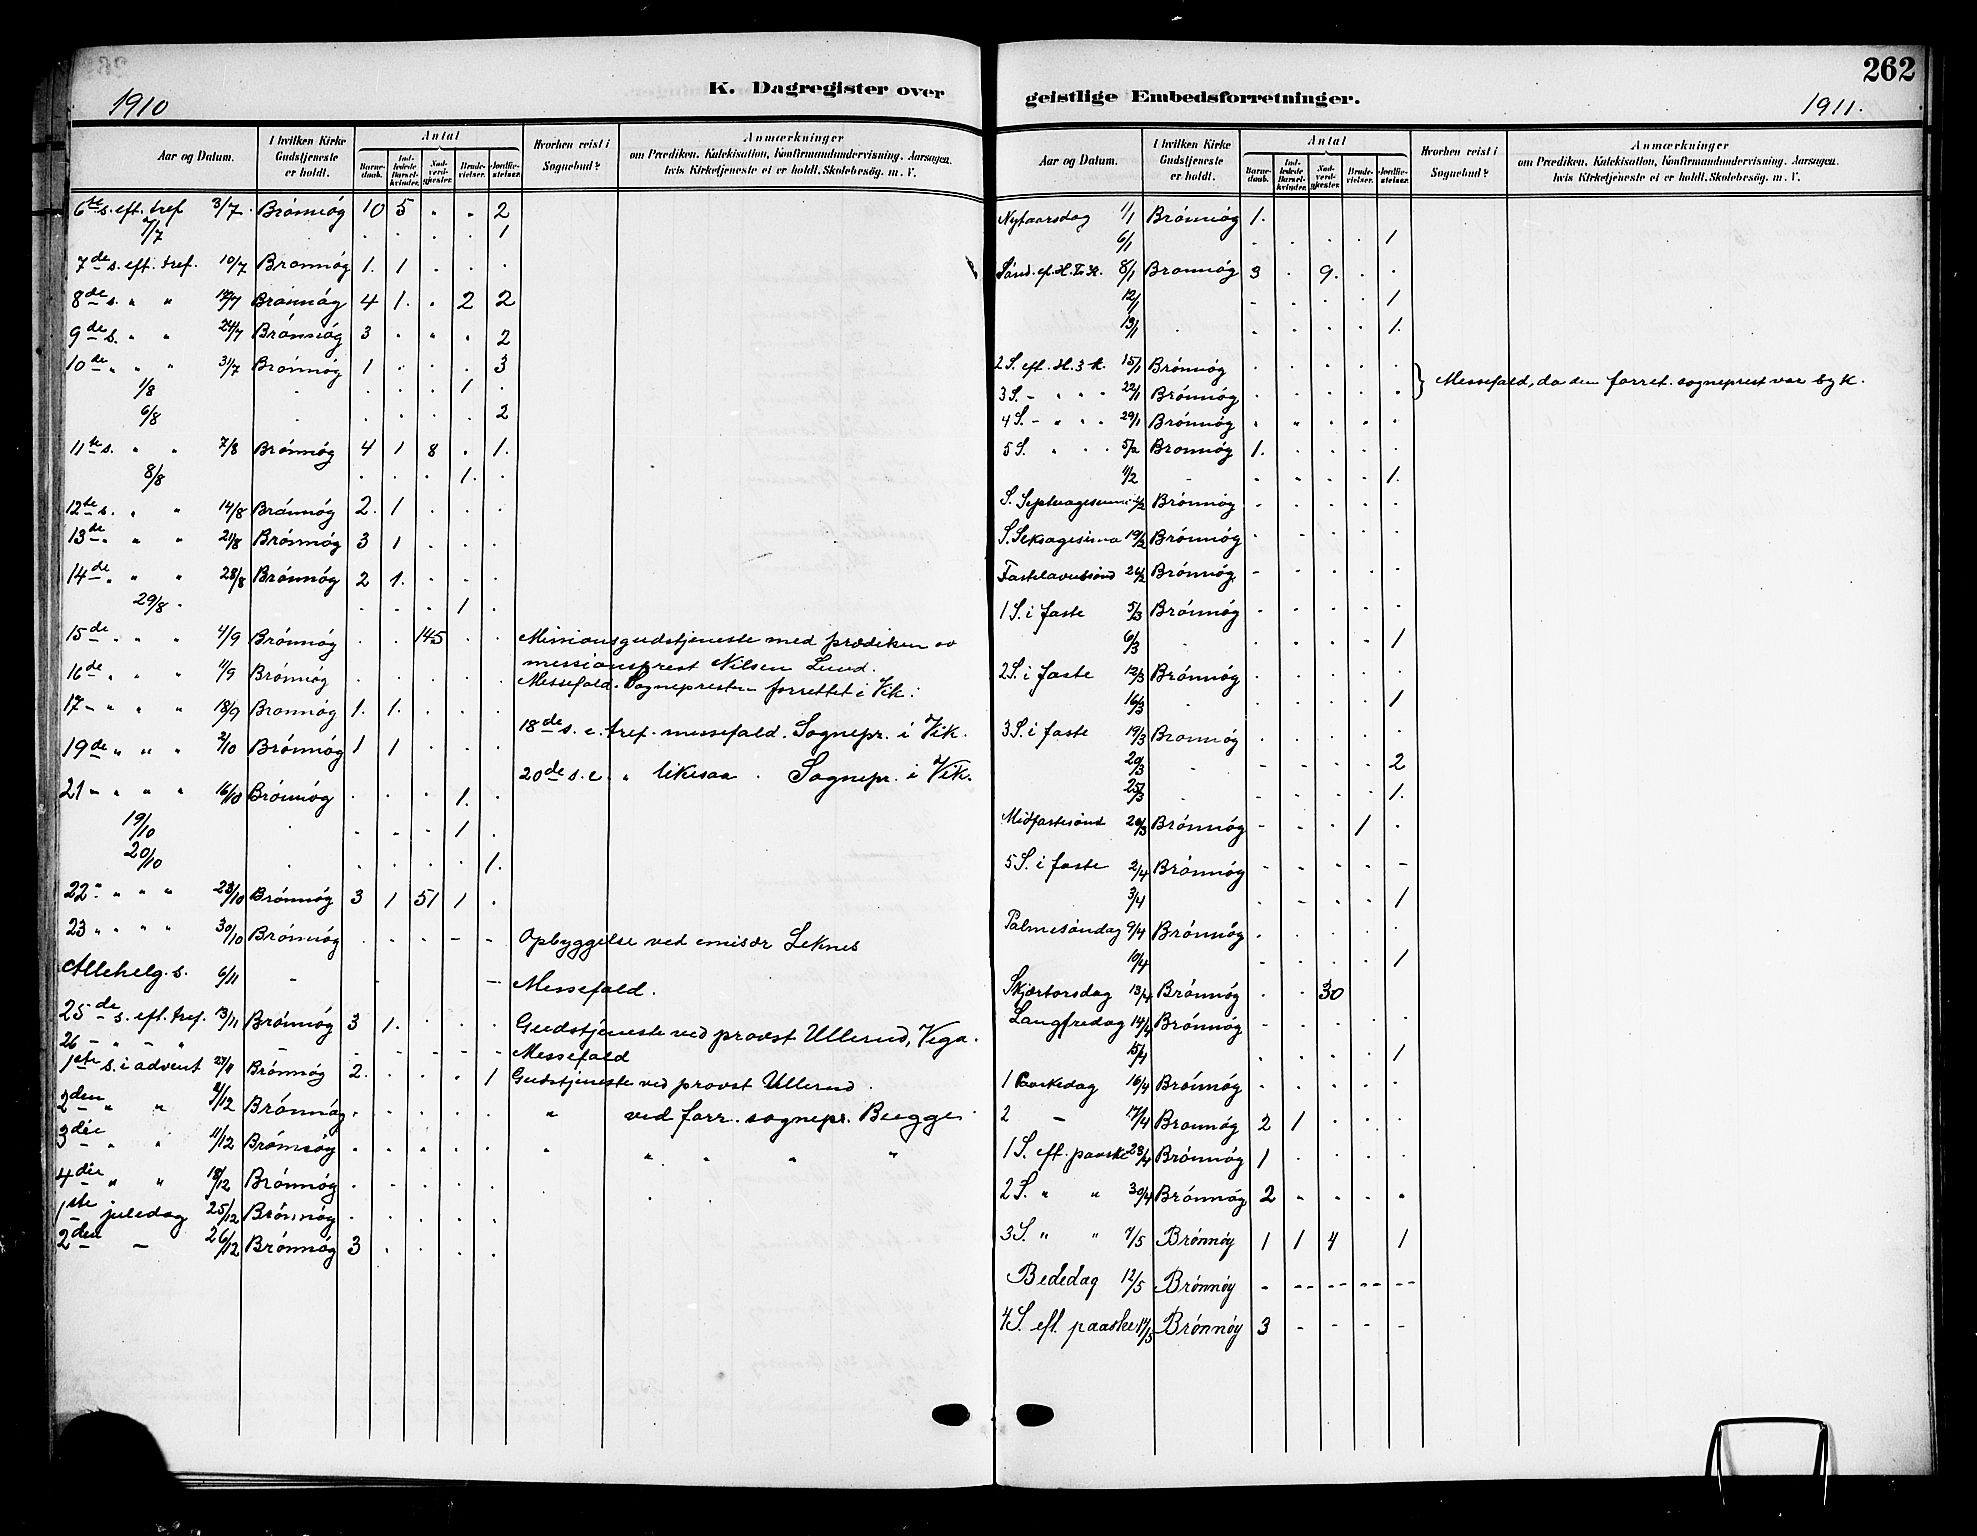 1910
K. Dagregister over
Aar og Datum. I hvilken Kirke Gudstjeneste er holdt. Antal Barnedaab. Indledede Barselkvinder. Nadverdgjester. Brudevielser. Jordfæstelser. Hvorhen reist i Sognebud? Anmærkninger om Prædiken, Katekisation, Konfirmandundervisning, Aarsagen, hvis Kirketjeneste ei er holdt, Skolebesøg, m. V.
6te s. eft. tref 3/7 Brönnög 10 5 " " 2
7/7 . . . . 1
7de s. eft. tref. 10/7 Brönnög 1. 1 . . .
8de s. " " 17/7 Brönnög 4 1. . 2 2
9de s. " " 24/7 Brönnög 3 . " . 2
10de " " " 31/7 Brönnög 1 . . . 3
1/8 . . . . 1 .
6/8 . . . . . 2
11te s. " " 7/8 Brönnög 4 1 8 . 1.
8/8 . . . 1. .
12te s. " " 14/8 Brönnög 2. 1 . . .
13de " " " 21/8 Brönnög 3 1 . . .
14de " " " 28/8 Brönnög 2 1. . . .
29/8 . . . . 1 .
15de " " " 4/9 Brönnög . . 145 . . Missionsgudstjeneste med prædiken av
missionsprest Nilsen Lund.
16de " " " 11/9 Brönnög . . . . . Messefald. Sognepresten forrettet i Vik.
17 - " " " 18/9 Brönnög 1. 1. . . .
18de s. e. tref. messefald. Sognepr. i Vik.
19de " " " 2/10 Brönnög 1 1 . . .
20de s. e. " likesaa . Sognepr. i Vik.
21 - " " " 16/10 Brönnög . . . 1. .
19/10 . . - . 1 .
20/10 . . . . . 1.
22 - " " " 23/10 Brönnög 3 1 51 1 .
23 " " " " 30/10 Brönnög . . . - - Opbyggelse ved emisær Leknes
Allehelg. s. 6/11 - - - Messefald.
25de s. eft. tref. 13/11 Brönnög 3 1. . . . Gudstjeneste ved provst Ullerud, Vega.
26 - " - " - - - - - - Messefald
1ste s. i advent 27/11 Brönnög 2. . . . 1 Gudstjeneste ved provst Ullerud.
2den " " 4/12 Brönnög . . . . . " ved forr. sognepr. Bugge.
3die " " 11/12 Brönnög . . . . . " " " " "
4die " " 18/12 Brönnög . . . . .
1ste juledag 25/12 Brönnög . . . . .
2den - 26/12 Brönnög 3 . . . .
262
geistlige Embedsforretninger.
1911.
Aar og Datum. I hvilken Kirke Gudstjeneste er holdt. Antal Barnedaab. Indledede Barselkvinder. Nadverdgjester. Brudevielser. Jordfæstelser. Hvorhen reist i Sognebud? Anmærkninger om Prædiken, Katekisation, Konfirmandundervisning, Aarsagen, hvis Kirketjeneste ei er holdt, Skolebesøg, m. V.
Nytaarsdag 1/1 Brönnög 1.
6/1 . . . . 1
Sönd. ef. H. T. K. 8/1 Brönnög 3 . 9. . .
12/1 - . . . 1
13/1 . - . . . 1.
2 S. eft. H. 3 K. 15/1 Brönnög . . . . .
3 S. - " " " 22/1 Brönnög . . . . . } Messefald, da den forret. sogneprest var syk.
4 S. - " " " 29/1 Brönnög . " . . .
5 S. " " " 5/2 Brönnög 1. . . . .
/2 - - . . . 1.
S. Septuagesima 12/2 Brönnög . . . . .
S. Seksagesima 19/2 Brönnög . . . . .
Fastelavnssönd 26/2 Brönnög - . . . .
1 S. i faste 5/3 Brönnög - - . . .
6/3 . - . . . 1
2 S. i faste 12/3 Brönnög . . . . .
16/3 . - . . . 1
3 S. i faste 19/3 Brönnög . . . . .
20/3 - - - . . 2
25/3 - - - . . 1.
Midfastesönd 26/3 Brönnög - - . 1 .
5 S. i faste 2/4 Brönnög - - - . -
3/4 . - . . 1
Palmesöndag 9/4 Brönnög . . . . .
10/4 - . . . 1
Skjærtorsdag 13/4 Brönnög . . 30
Langfredag 14/4 Brönnög - - - . .
15/4 . . . . 1
1 Paaskedag 16/4 Brönnög . . . . .
2 - 17/4 Brönnög 2 1 . . .
1 S. eft. paaske 23/4 Brönnög 1 . . . .
2 S. " " 30/4 Brönnög 2 " . . .
3 S. " " 7/5 Brönnöy 1 1 4 1
Bededag 12/5 Brönnöy - -- -- -- --
4 S. eft. paaske 14/5 Brönnöy 3 - - - -